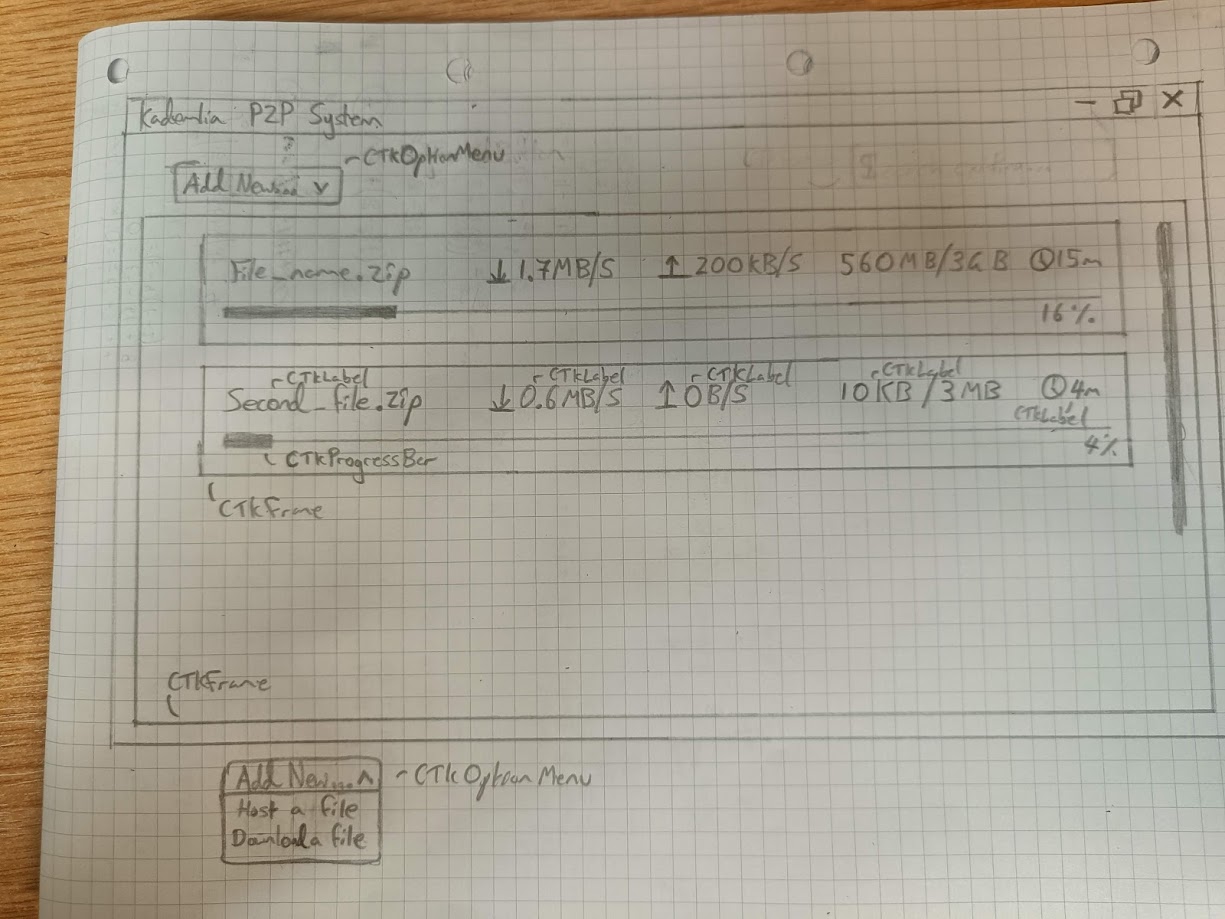 Kademlia P2P System
CTkOptionMenu
Add New... v
File_name.zip ↓ 1.7MB/S ↑ 200kB/S 560MB/3GB 15m
16%
CTkLabel CTkLabel CTkLabel CTkLabel
Second_file.zip ↓ 0.6MB/S ↑ 0B/S 10KB/3MB 4m
CTkLabel
4%
CTkProgressBar
CTkFrame
CTkFrame
Add New... ʌ CTkOptionMenu
Host a file
Download a file